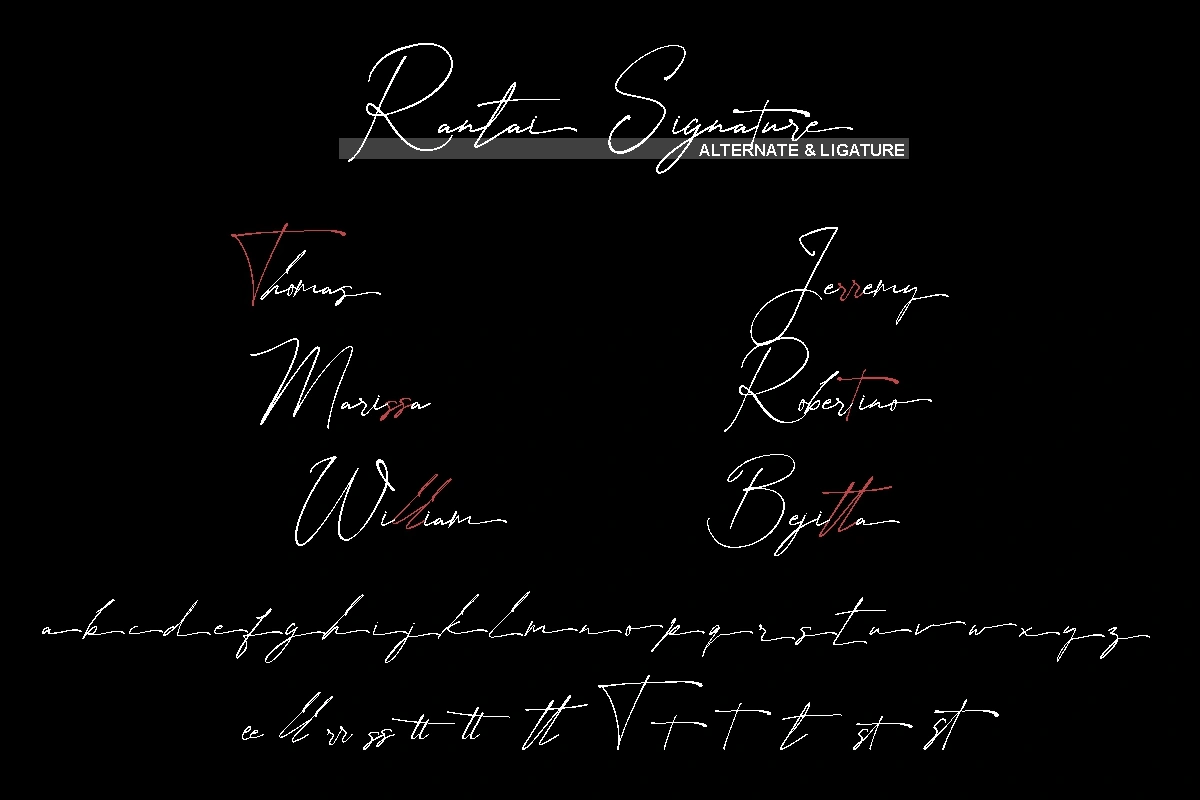 Rantai Signature
ALTERNATE & LIGATURE
Thomas Jerremy
Marissa Robertino
William Bejitta
a b c d e f g h i j k l m n o p q r s t u v w x y z
ee ll rr ss tt tt tt T t t t st st